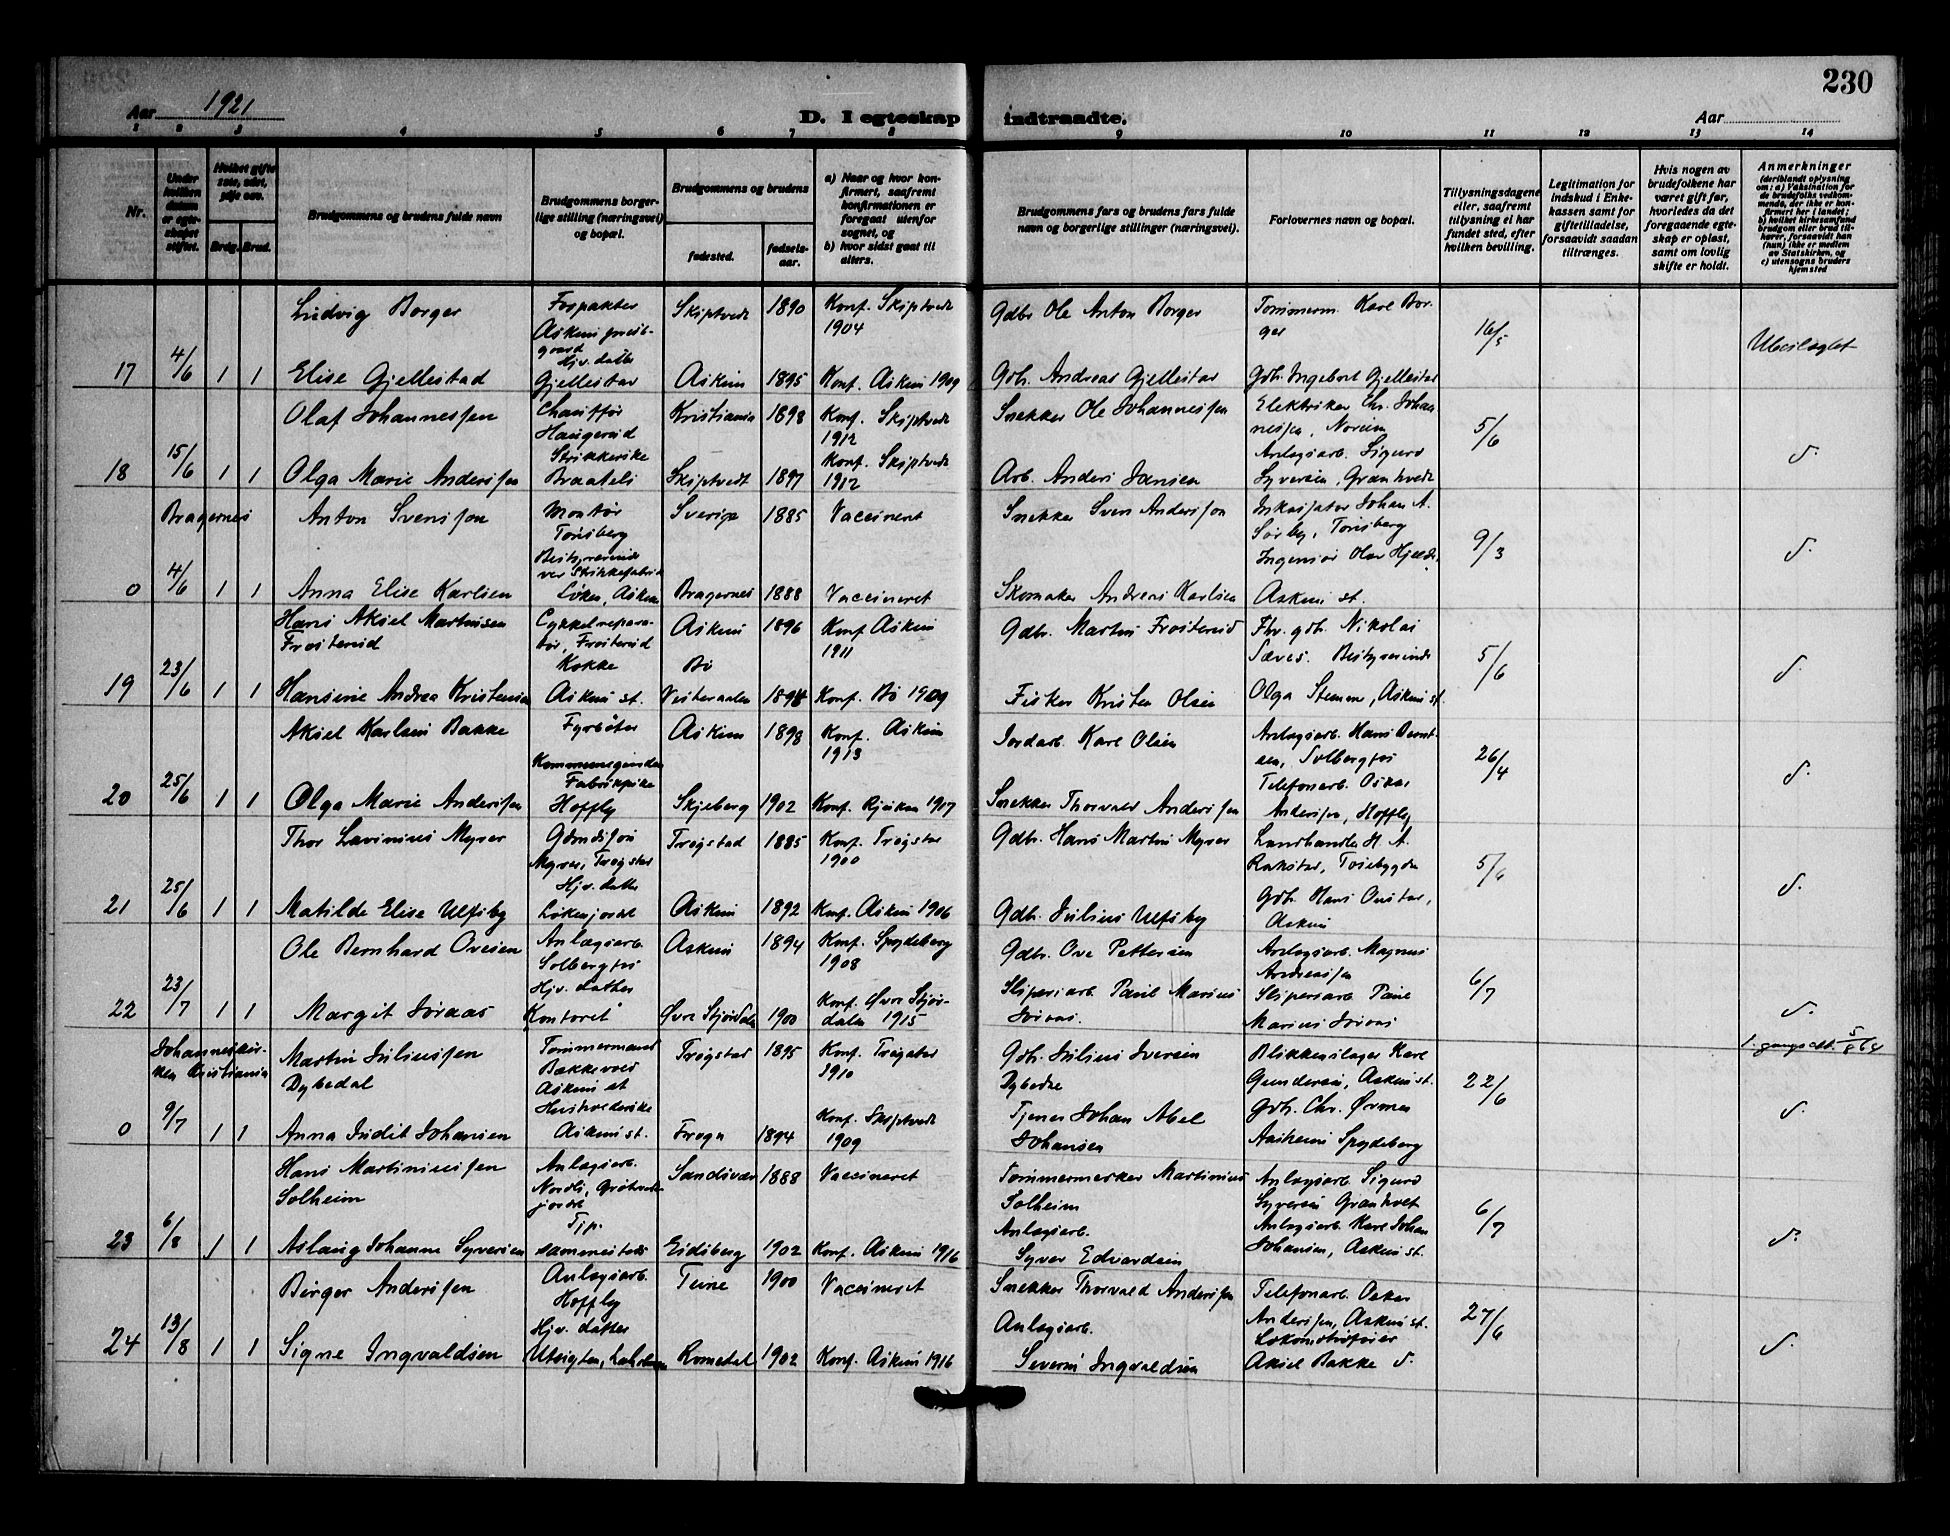 230
Aar 1921
D. I egteskap indtraadte.
Aar
1 2 3 4 5 6 7 8 9 10 11 12 13 14
Nr.
Under hvilken datum er egteskapet stiftet.
Hvilket gifte
Brdg. Brud.
Brudgommens og brudens fulde navn
Brudgommens borgerlige stilling (næringsvei) og bopæl.
Brudgommens og brudens
fødested.
fødselsaar.
a) Naar og hvor konfirmert, saafremt konfirmationen er foregaat utenfor sognet, og
b) hvor sidst gaat til alters.
Brudgommens fars og brudens fars fulde navn og borgerlige stillinger (næringsvei).
Forlovernes navn og bopæl.
Tillysningsdagene eller, saafremt tillysning ei har fundet sted, efter hvilken bevilling.
Legitimation for indskud i Enkekassen samt for giftetilladelse, forsaavidt saadan tiltrænges.
Hvis nogen av brudefolkene har været gift før, hvorledes da det foregaaende egteskap er opløst, samt om lovlig skifte er holdt.
Anmerkninger
(deriblandt oplysning om: a) Vaksination for de brudefolks vedkommende, der ikke er konfirmert her i landet; b) hvilket kirkesamfund brudgom eller brud tilhører, forsaavidt han (hun) ikke er medlem av Statskirken, og c) utensogns bruders hjemsted
Ludvig Borger Forpakter Skiptvedt 1890 Konf. Skiptvedt Gdbr Ole Anton Borger Tømmerm. Karl Bor-
Askim prest- 1904 ger 16/5
gaard Ubeslegtet
4/6 Hjv. datter
17 1 1 Elise Gjellestad Gjellestad Askim 1895 Konf. Askim 1909 Gdb. Andreas Gjellestad Gdb. Ingebret Gjellestad
Olaf Johannessen Chauffør Kristiania 1898 Konf. Skiptvedt Snekker Ole Johannessen Elektriker Chr. Johan
Haugerud 1912 nessen, 5/6
15/6 Strikkerske Konf. Skiptvedt Anlægsarb. Sigurd
18 1 1 Olga Marie Anderssen Braateli Skiptvedt 1897 1912 Arb. Anders Jansen Syversen, Granhvedt
Bragernes Anton Svenssen Montør Sverige 1885 Vaccineret Snekker Sven Anderssen Inkassator Johan A.
Tønsberg Sørby, Tønsberg 9/3
Bestyrerinde Ingeniør Olav
4/6 Strikkefabrik
0 1 1 Anna Elise Karlsen Løken, Askim Bragernes 1888 Vaccineret Skomaker Andreas Karlsen Askim st.
Hans Aksel Martinsen Cykkelrepara- Askim 1896 Konf Askim Gdbr. Martin Frøsterud Fhv. gdb. Nikolai
Frøsterud tør, Frøsterud 1911 Bestyrerinde 5/6
23/6 Kokke Bø
19 1 1 Hansine Andrea Kristensen Askim st. Vesteraalen 1894 Konf. Bø 1909 Fisker Kristen Olsen Olga Stemme, Askim st.
Aksel Karlsen Bakke Fyrbøter Askim 1898 Konf. Askim Jordarb. Karl Olsen Anlægsarb. Hans Bernt-
Kommunegaarden 1913 sen, Solbergfos 26/4
25/6 Fabrikpike Telefonarb. Oskar
20 1 1 Olga Marie Anderssen Hoffby Skjeberg 1902 Konf. 1917 Snekker Thorvald Anderssen Anderssen, Hoffby
Thor Lavinius Myrer Gdmdssøn Trøgstad 1885 Konf. Trøgstad Gdbr. Hans Martin Myrer Landhandler H. A.
Myrer, Trøgstad 1900 Rakstad, 5/6
25/6 Hjv. datter Gdb. Hans Onstad,
21 1 1 Matilde Elise Ulfsby Løkenjordet Askim 1892 Konf. Askim 1906 Gdb. Julius Ulfsby Askim
Ole Bernhard Ovesen Anlægsarb. Askim 1894 Konf. Spydeberg Gdbr. Ove Pettersen Anlægsarb. Magnus
Solbergfos 1908 Andreassen 6/7
23/7 Hjv. datter Konf. Øvre Stjør- Sliperiarb. Paul Marius Sliperiarb. Paul
22 1 1 Margit Joraas Kontoret Øvre Stjørdalen 1900 dalen 1915 Joraas. Marius Joraas
Johanneskir- Martin Juliussen Tømmermand Trøgstad 1895 Konf. Trøgstad Gdb. Julius Iversen Blikkenslager Karl
ken Kristiania Dybedal Bakkerud 1910 Dybedal Gundersen, Askim st. 22/6
Askim st Gdb. Chr.
9/7 Husholderske Konf. Skiptvedt Tjener Johan Abel
0 1 1 Anna Judit Johansen Askim st. Frogn 1894 1909 Johansen Spydeberg
Hans Martiniussen Anlægsarb. Sandsvær 1888 Vaccineret Tømmermerker Martinius Anlægsarb Sigurd
Solheim Nordli, Solheim Syversen Granhvet 6/7
6/8 Tjp. Anlægsarb. Anlægsarb. Karl Johan
23 1 1 Aslaug Johanne Syversen sammesteds Eidsberg 1902 Konf. Askim 1916 Syver Edvardsen Johansen, Askim st.
Birger Anderssen Anlægsarb. Tune 1900 Vaccineret Snekker Thorvald Anderssen Telefonarb. Oskar
Hoffby Anderssen, Askim st. 27/6
13/8 Hjv. datter Anlægsarb. Lokomotivfører
24 1 1 Signe Ingvaldsen Utsigten, Romedal 1902 Konf. Askim 1916 Severin Ingvaldsen Aksel Bakke